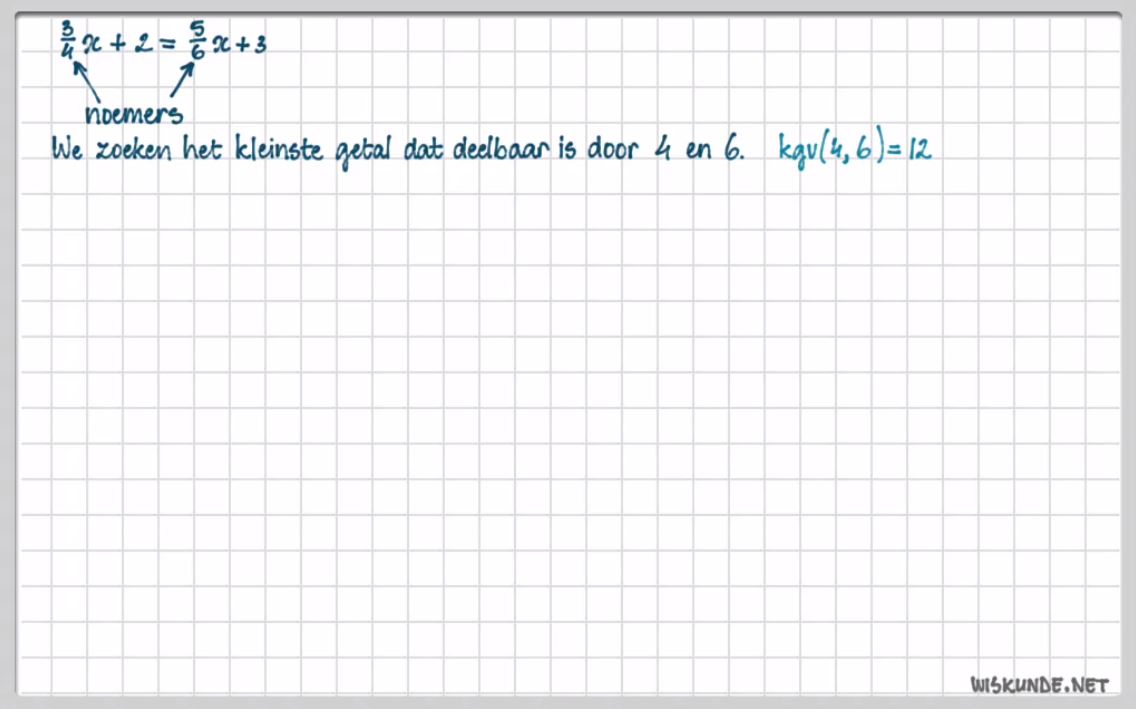 3/4 x + 2 = 5/6 x + 3
noemers
We zoeken het kleinste getal dat deelbaar is door 4 en 6. kgv(4, 6) = 12
WISKUNDE.NET